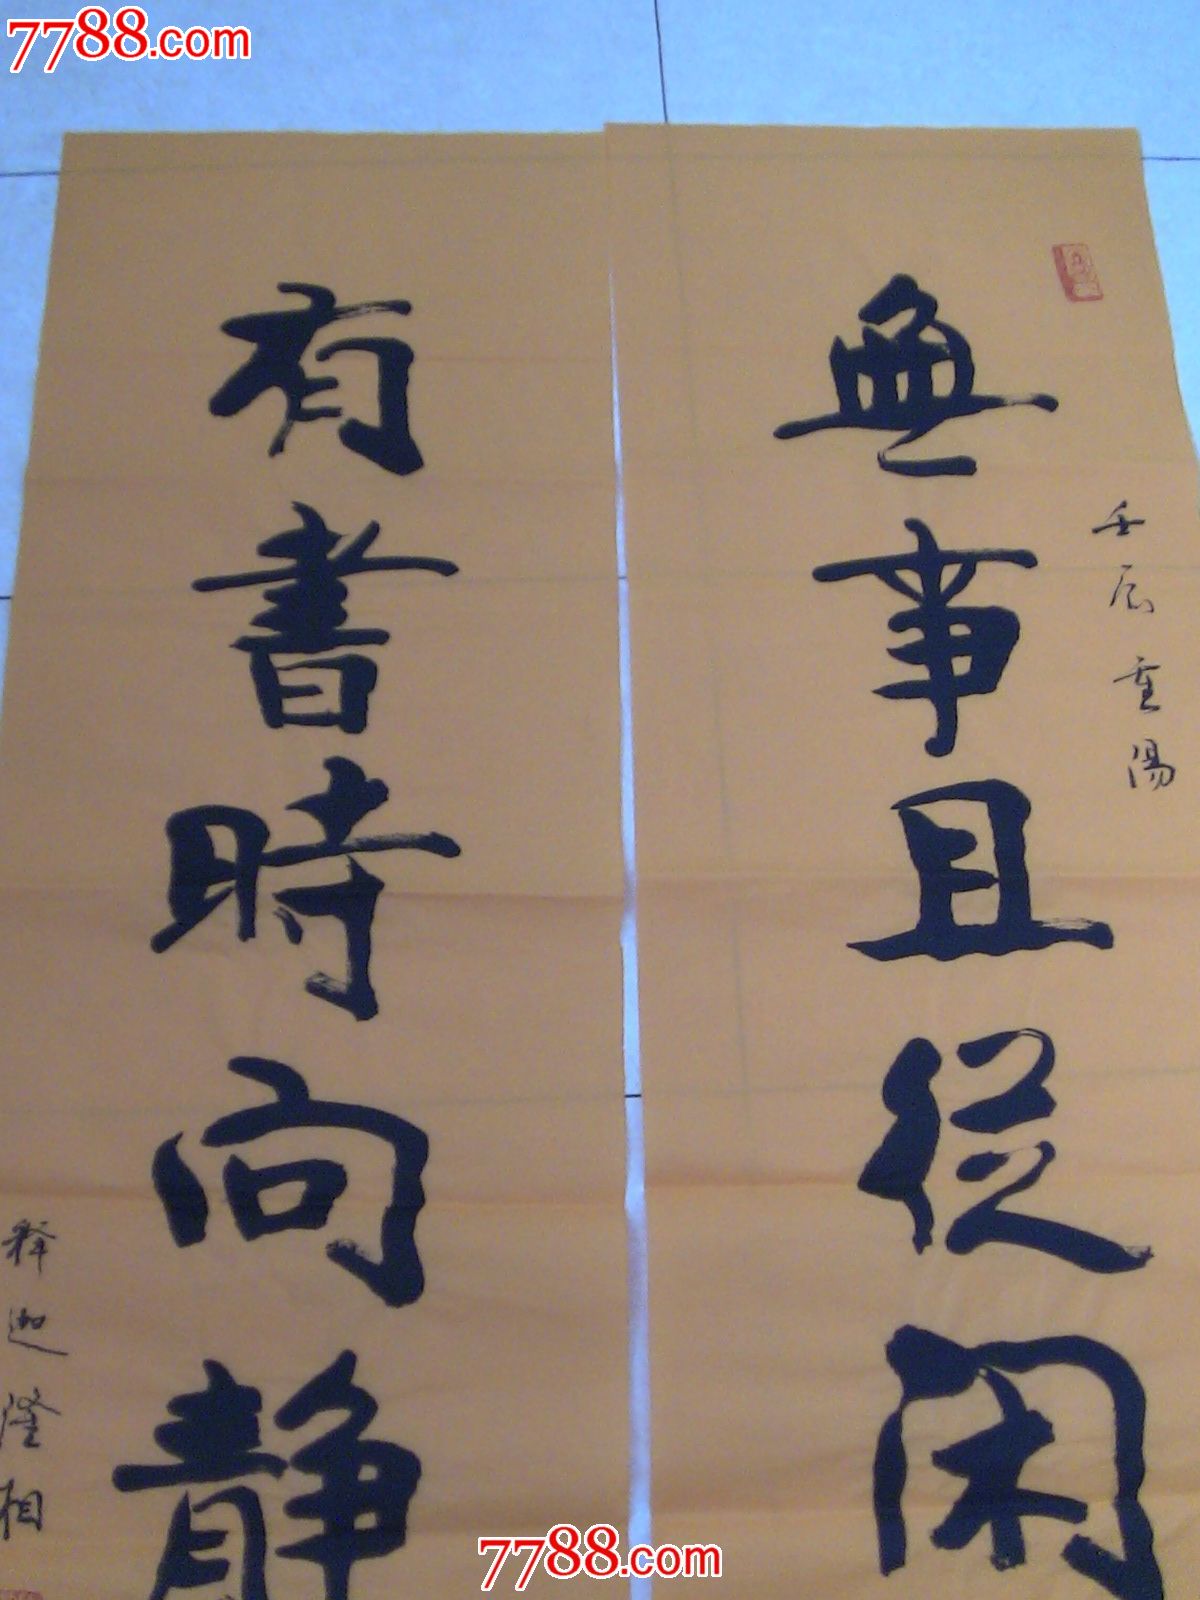 7788.com
壬辰重陽
無事且從閑
有書時向靜
释迦隆相
7788.com